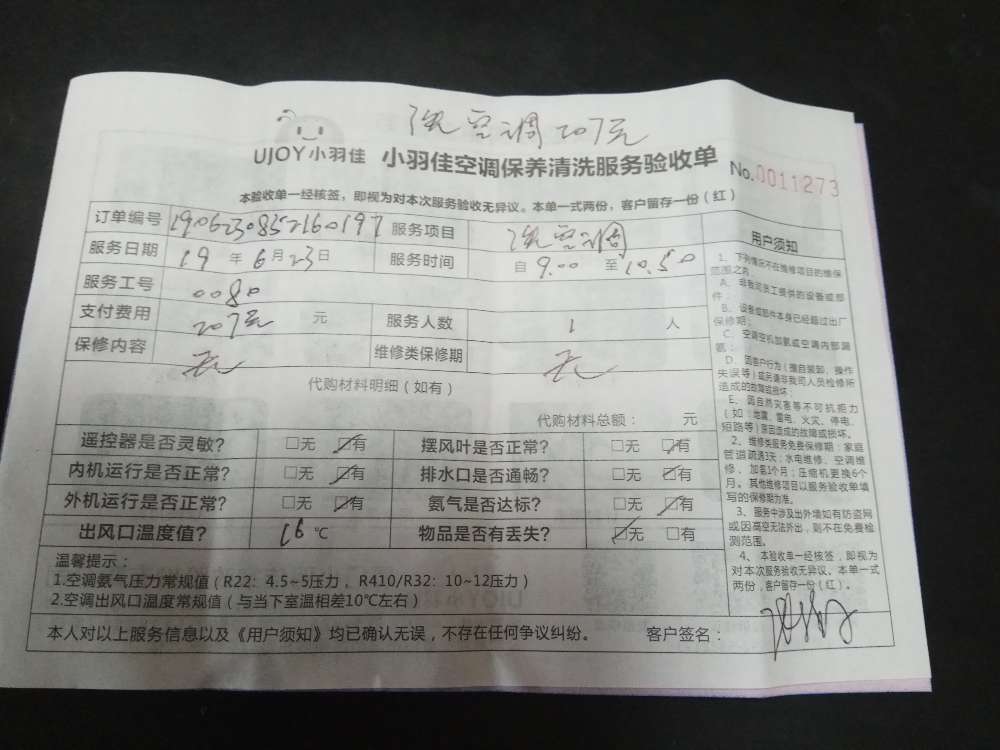 洗空调207元
UJOY小羽佳 小羽佳空调保养清洗服务验收单 No.0011273
本验收单一经核签，即视为对本次服务验收无异议。本单一式两份，客户留存一份（红）
订单编号 1906230852160197 服务项目 洗空调
服务日期 19 年 6 月 23 日 服务时间 自 9.00 至 10.50
服务工号 0080
支付费用 207元 元 服务人数 1 人
保修内容 无 维修类保修期 无
代购材料明细（如有）
代购材料总额： 元
遥控器是否灵敏? □无 ☑有 摆风叶是否正常? □无 ☑有
内机运行是否正常? □无 ☑有 排水口是否通畅? □无 ☑有
外机运行是否正常? □无 ☑有 氨气是否达标? □无 ☑有
出风口温度值? 16 ℃ 物品是否有丢失? ☑无 □有
温馨提示：
1.空调氨气压力常规值（R22：4.5~5压力，R410/R32：10~12压力）
2.空调出风口温度常规值（与当下室温相差10℃左右）
本人对以上服务信息以及《用户须知》均已确认无误，不存在任何争议纠纷。 客户签名：
用户须知
1、下列情况不在维修项目的维保
范围之内：
A、非我司员工提供的设备或部
件；
B、设备或部件本身已经超过出厂
保修期；
C、空调空机加氨或空调内部漏
氨；
D、因客户行为（擅自装卸、操作
失误等）或另请非我司人员检修所
造成的故障或损坏；
E、因自然灾害等不可抗拒力
（如：地震、雷电、火灾、停电、
短路等）原因造成的故障或损坏。
2、维修类服务免费保修期：家庭
管道疏通3天；水电维修、空调维
修、加氨1个月；压缩机更换6个
月。其他维修项目以服务验收单填
写的保修期为准。
3、服务中涉及出外墙如有防盗网
或因高空无法外出，则不在免费检
测范围。
4、本验收单一经核签，即视为
对本次服务验收无异议。本单一式
两份，客户留存一份（红）。